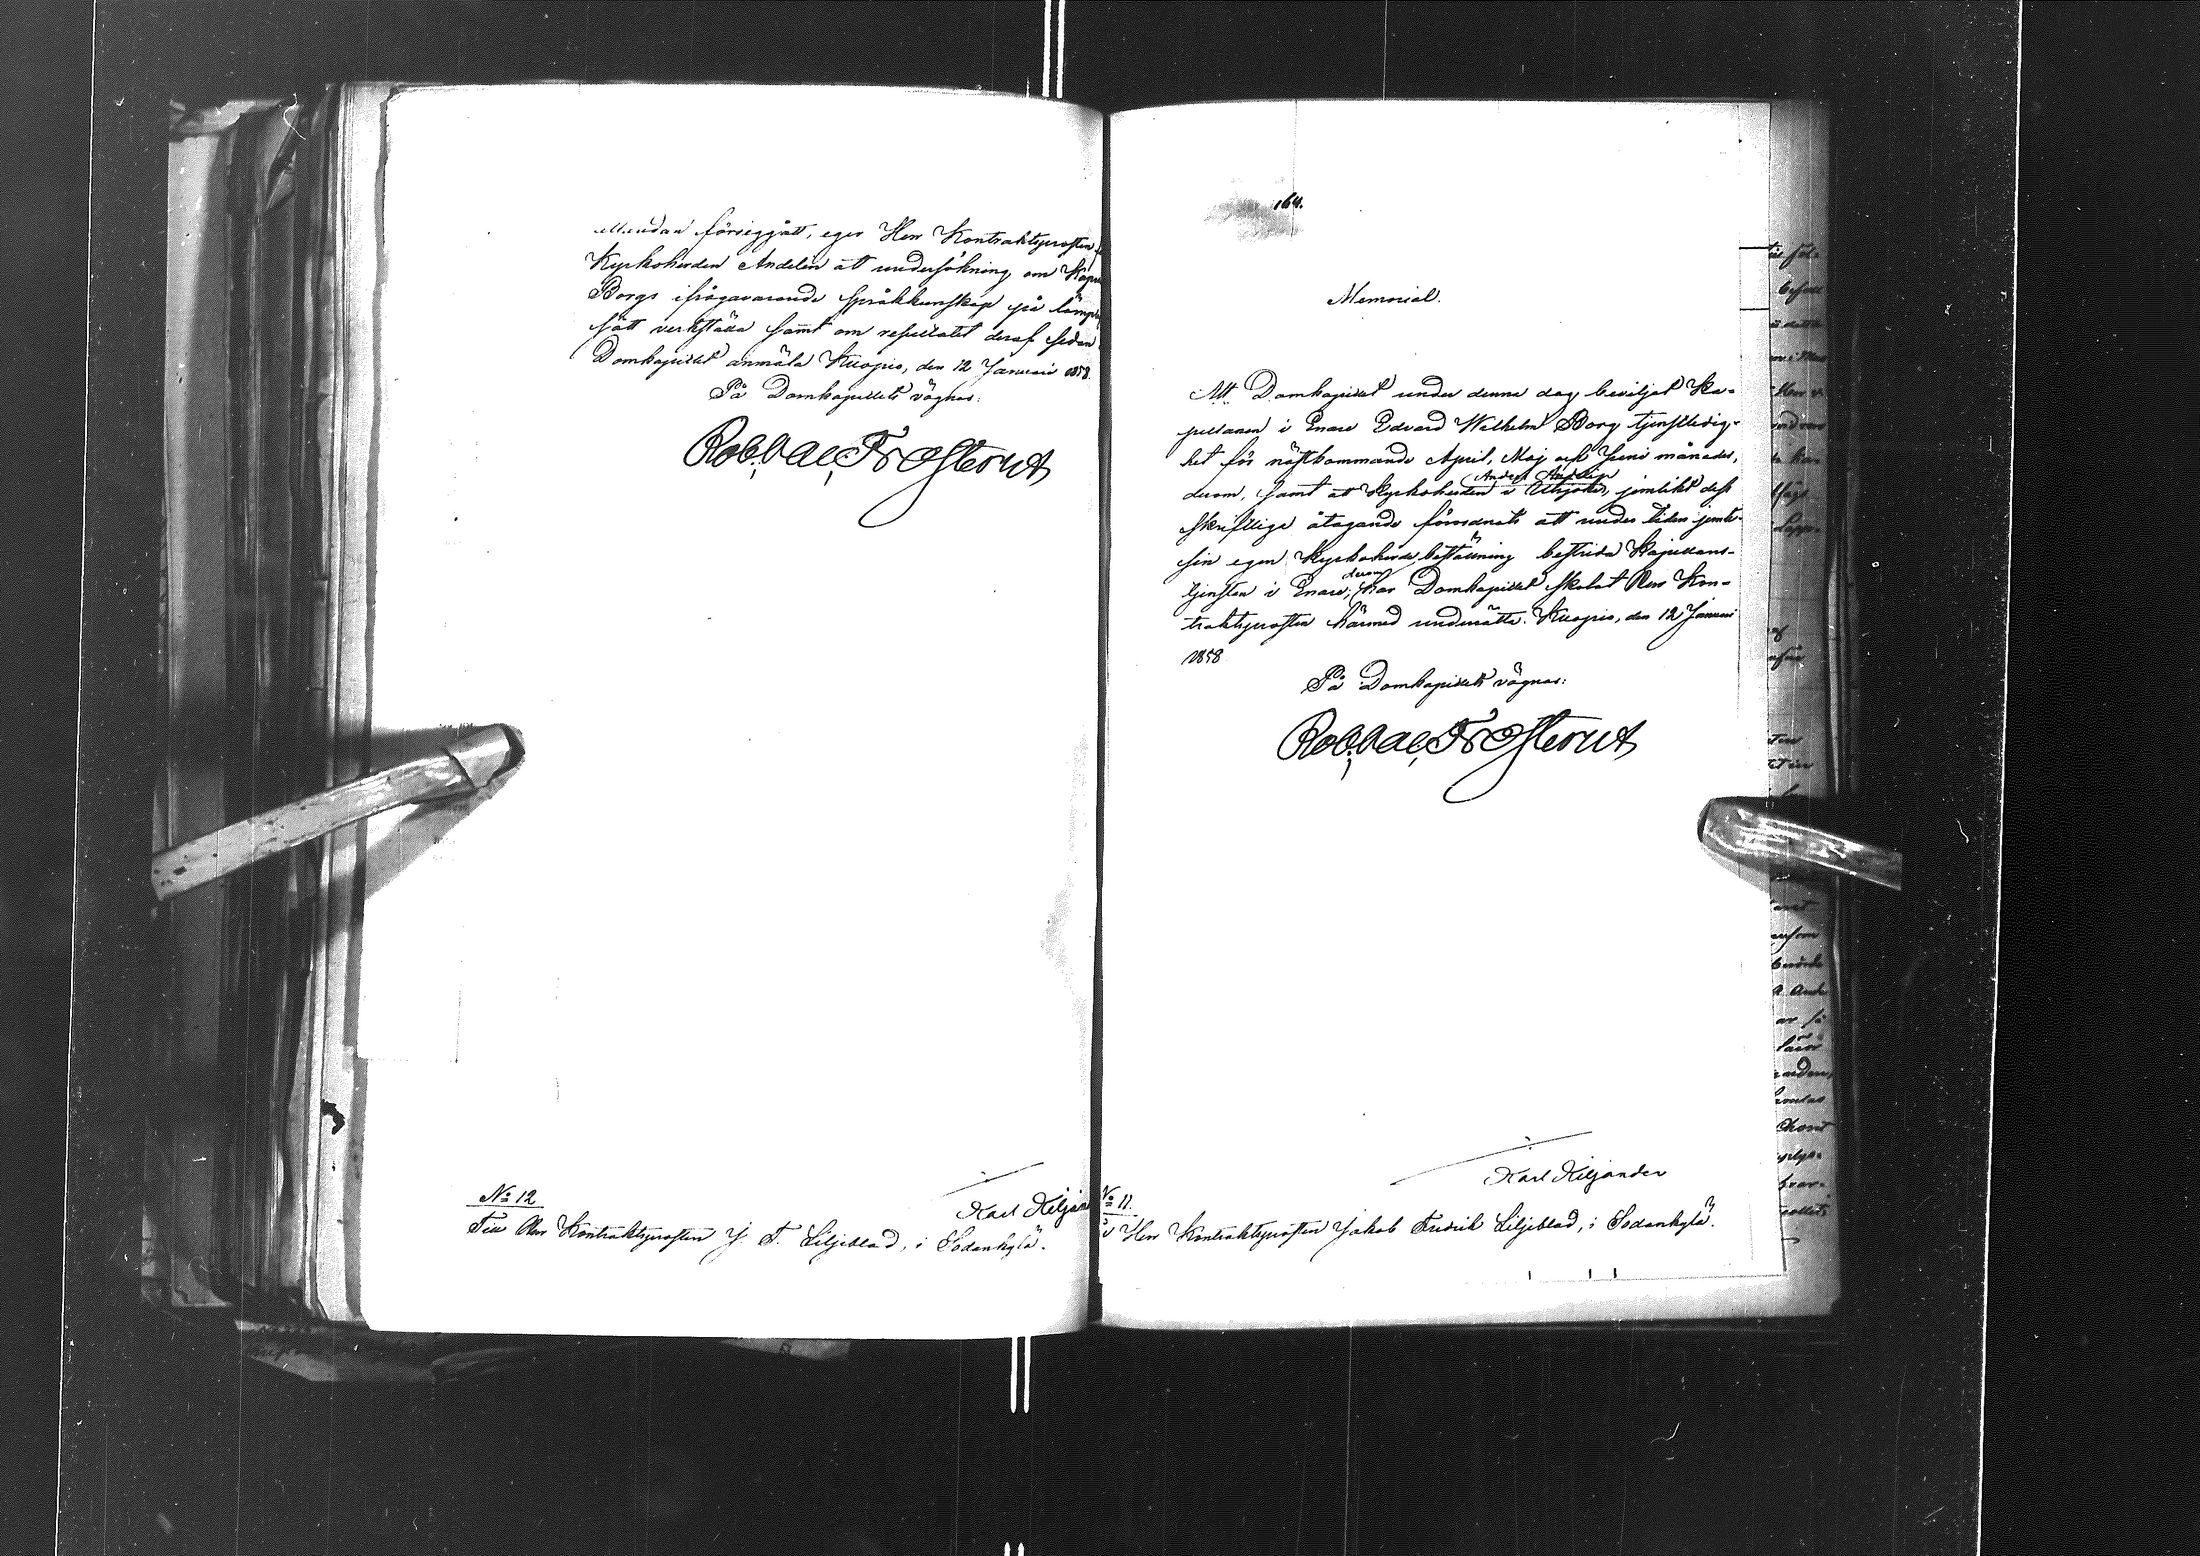 emedan försiggått, eger Herr Kontraktsprosten
Kyrkoherden Andelin att undersökning om Kapel
Borgs ifrågavarande språkkunskap på lämp
sätt verkställa samt om resultatet deraf sedan
Domkapitlet anmäla Kuopio, den 12 Januari 1858.
På Domkapitlets vägnar:
Robbae Frosterus
Karl Kiljan
No 12
Till Herr Kontraktsprosten J. F. Liljeblad, i Sodankylä.
164.
Memorial.
Att Domkapitlet under denna dag beviljat Ka-
pellanen i Enare Edvard Wilhelm Borg tjenstledig-
het för nästkommande April, Maj och Juni månader,
derom, samt att Kyrkoherden i Utsjoki, Anders Andelin jemlikt dess
skriftliga åtagande förordnats att under tiden jemte
sin egen Kyrkoherde beställning bestrida Kapellans-
tjensten i Enare; derom har Domkapitlet skolat Herr Kon-
traktsprosten härmed underrätta. Kuopio, den 12 Januari
1858
På Domkapitlets vägnar:
Robbae Frosterus
Karl Kiljander
No 11.
Herr Kontraktsprosten Jakob Fredrik Liljeblad, i Sodankylä.